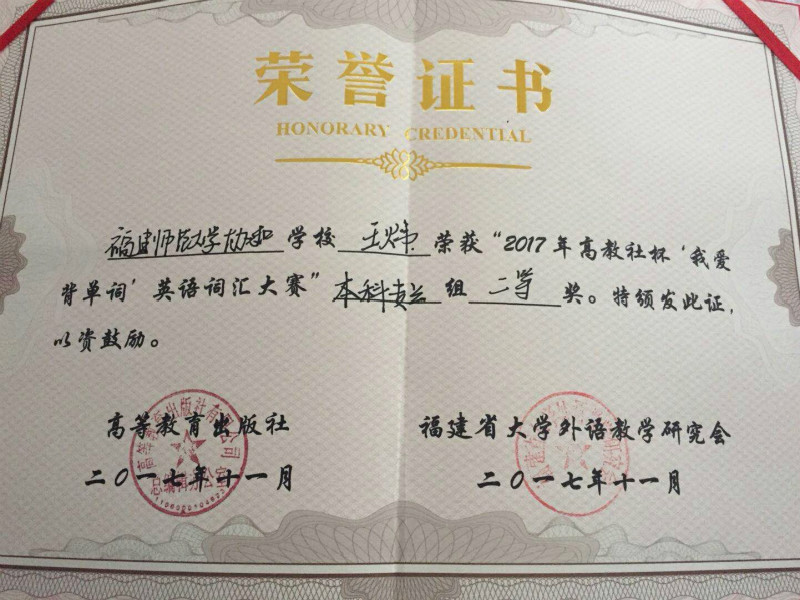 荣誉证书
HONORARY CREDENTIAL
福建师范大学协和学校王炜荣获“2017年高教社杯‘我爱
背单词’英语词汇大赛”本科组二等奖。特颁发此证，
以资鼓励。
高等教育出版社
二〇一七年十一月
福建省大学外语教学研究会
二〇一七年十一月